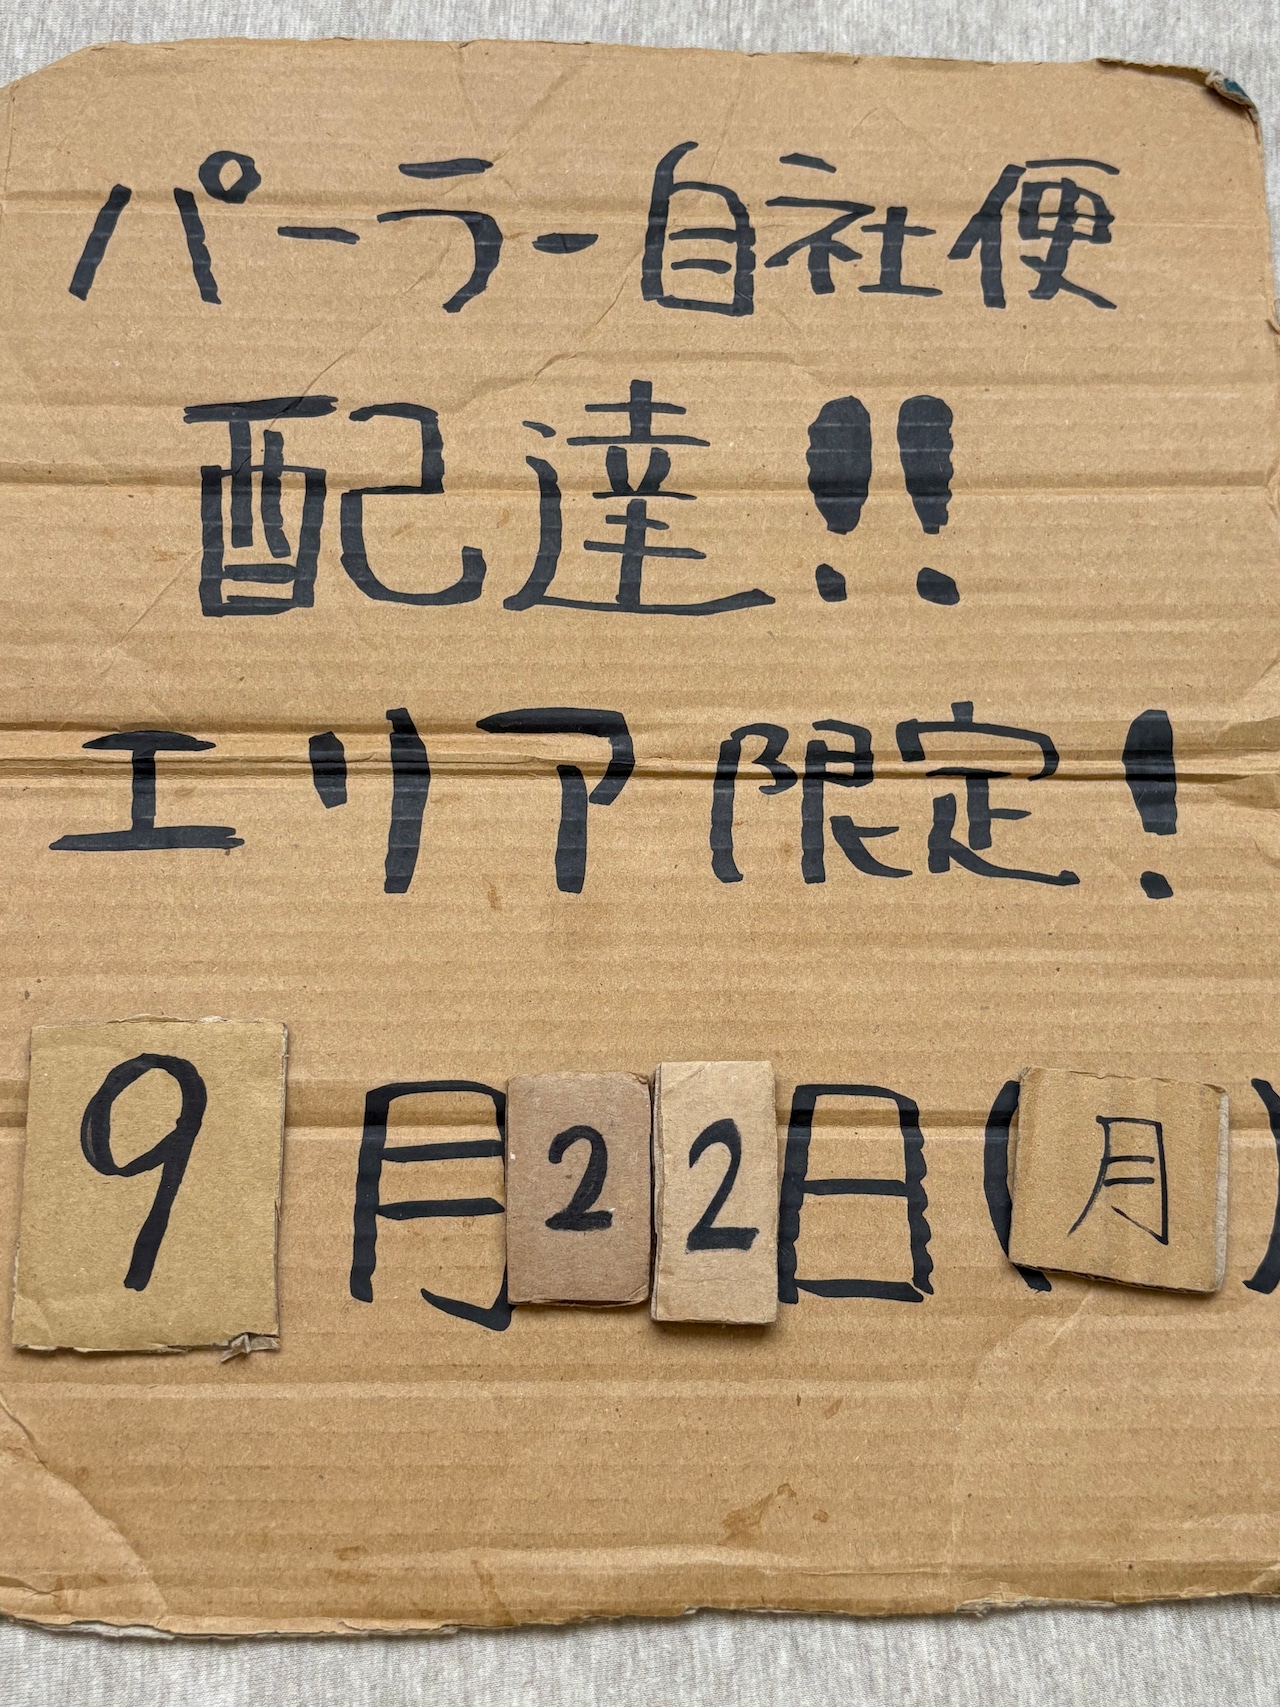 パーラー自社便
配達!!
エリア限定!
9月22日(月)